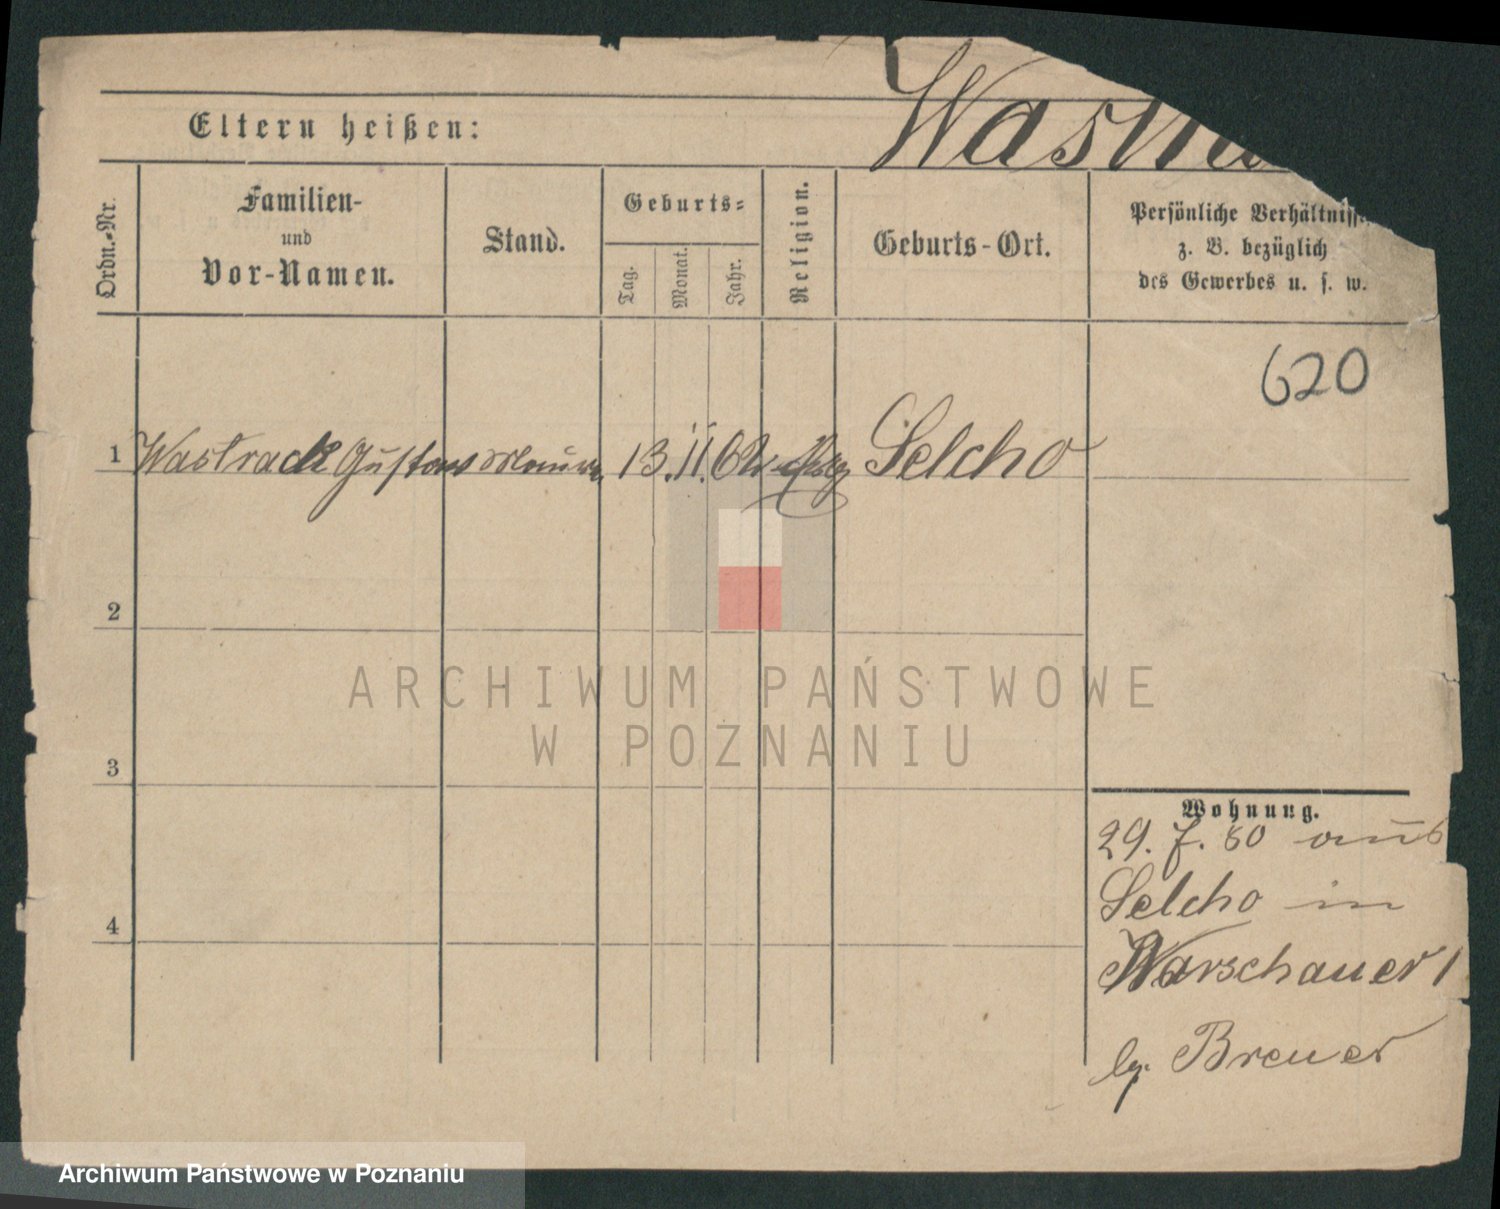 Wastra
Eltern heißen:
Ordn.-Nr.
Familien-
und
Vor-Namen.
Stand.
Geburts-
Tag.
Monat.
Jahr.
Religion.
Geburts-Ort.
Persönliche Verhältnisse
z. B. bezüglich
des Gewerbes u. s. w.
620
1 Wastrack Gustav 13. 11. 62 Selcho
2
3
4
Wohnung.
29. 7. 80 aus
Selcho in
Warschauer 1
Breuer
ARCHIWUM PAŃSTWOWE
W POZNANIU
Archiwum Państwowe w Poznaniu